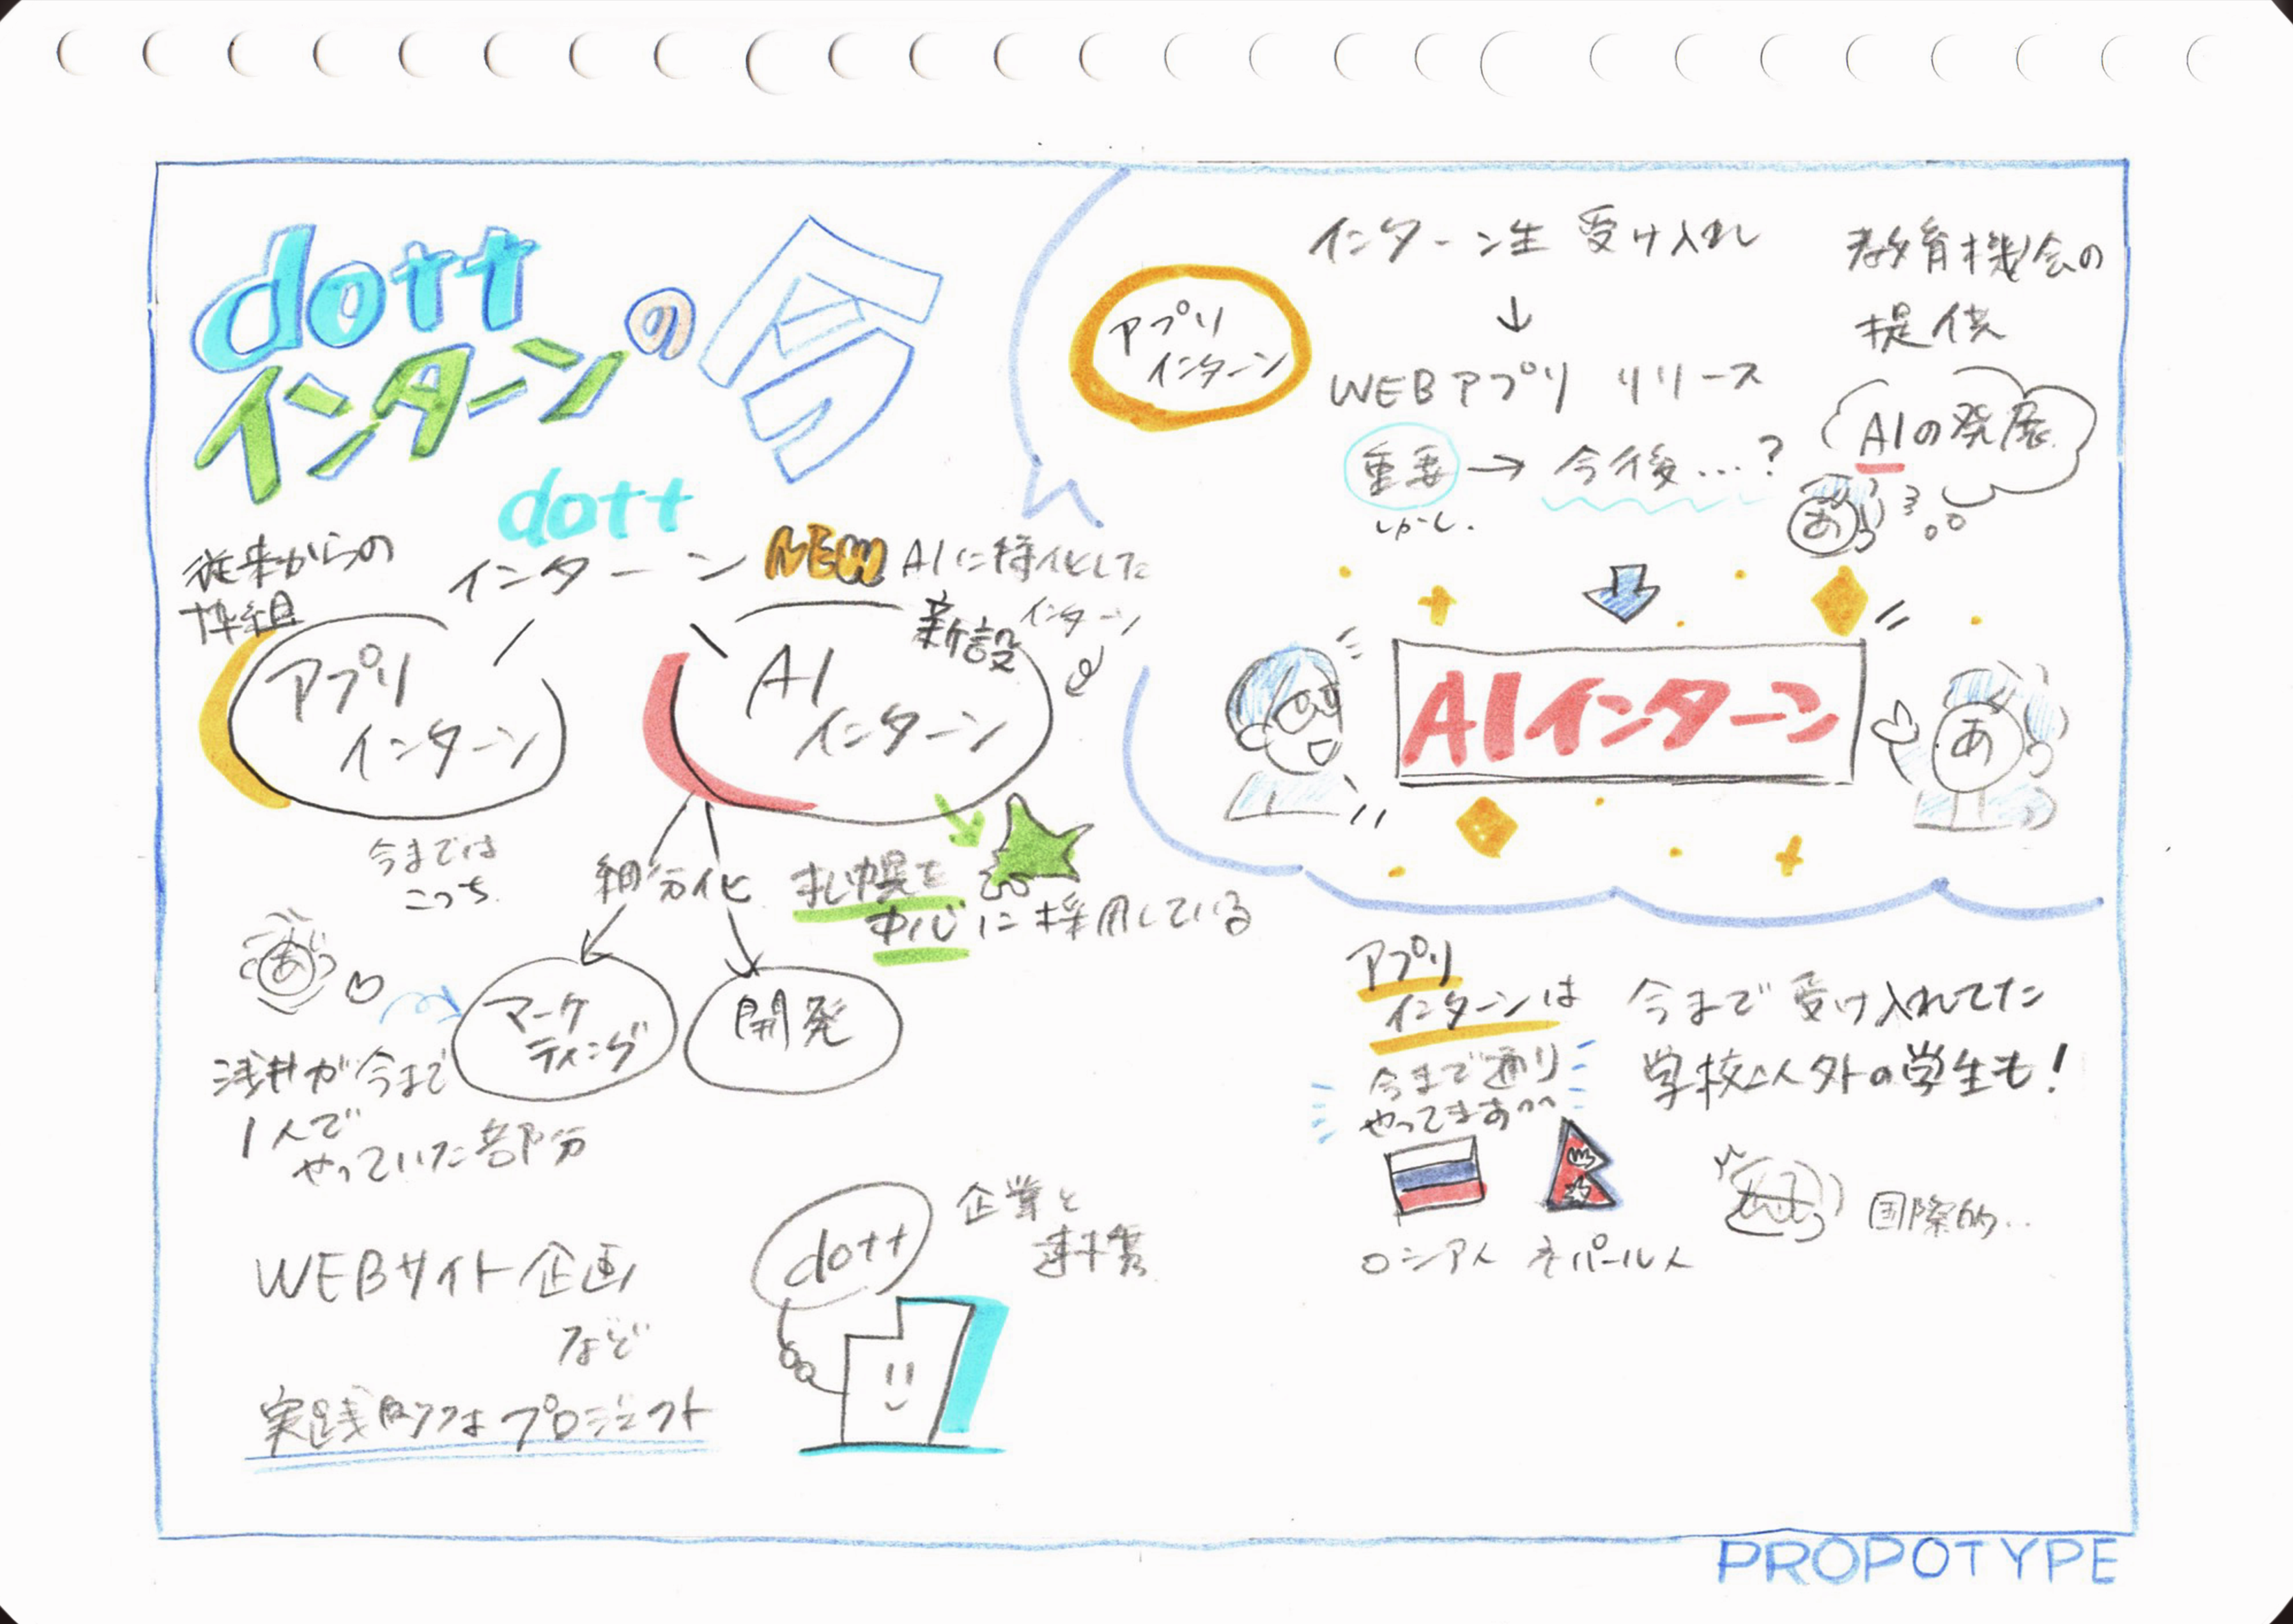 dott
インターンの今
dott
インターン
従来からの
枠組
アプリ
インターン
今までは
こっち
NEW
AIに特化した
インターン
新設
AI
インターン
細分化
札幌を
中心に採用している
マーケ
ティング
開発
あ
浅井が今まで
1人で
やっていた部分
WEBサイト企画
など
実践的なプロジェクト
dott
企業と
連携
アプリ
インターン
インターン生 受け入れ
↓
WEBアプリ リリース
教育機会の
提供
重要→今後…?
しかし.
AIの発展
あ
AIインターン
あ
アプリ
インターンは
今まで通り
やってます
今まで受け入れてた
学校以外の学生も!
ロシア人
ネパール人
国際的..
PROPOTYPE